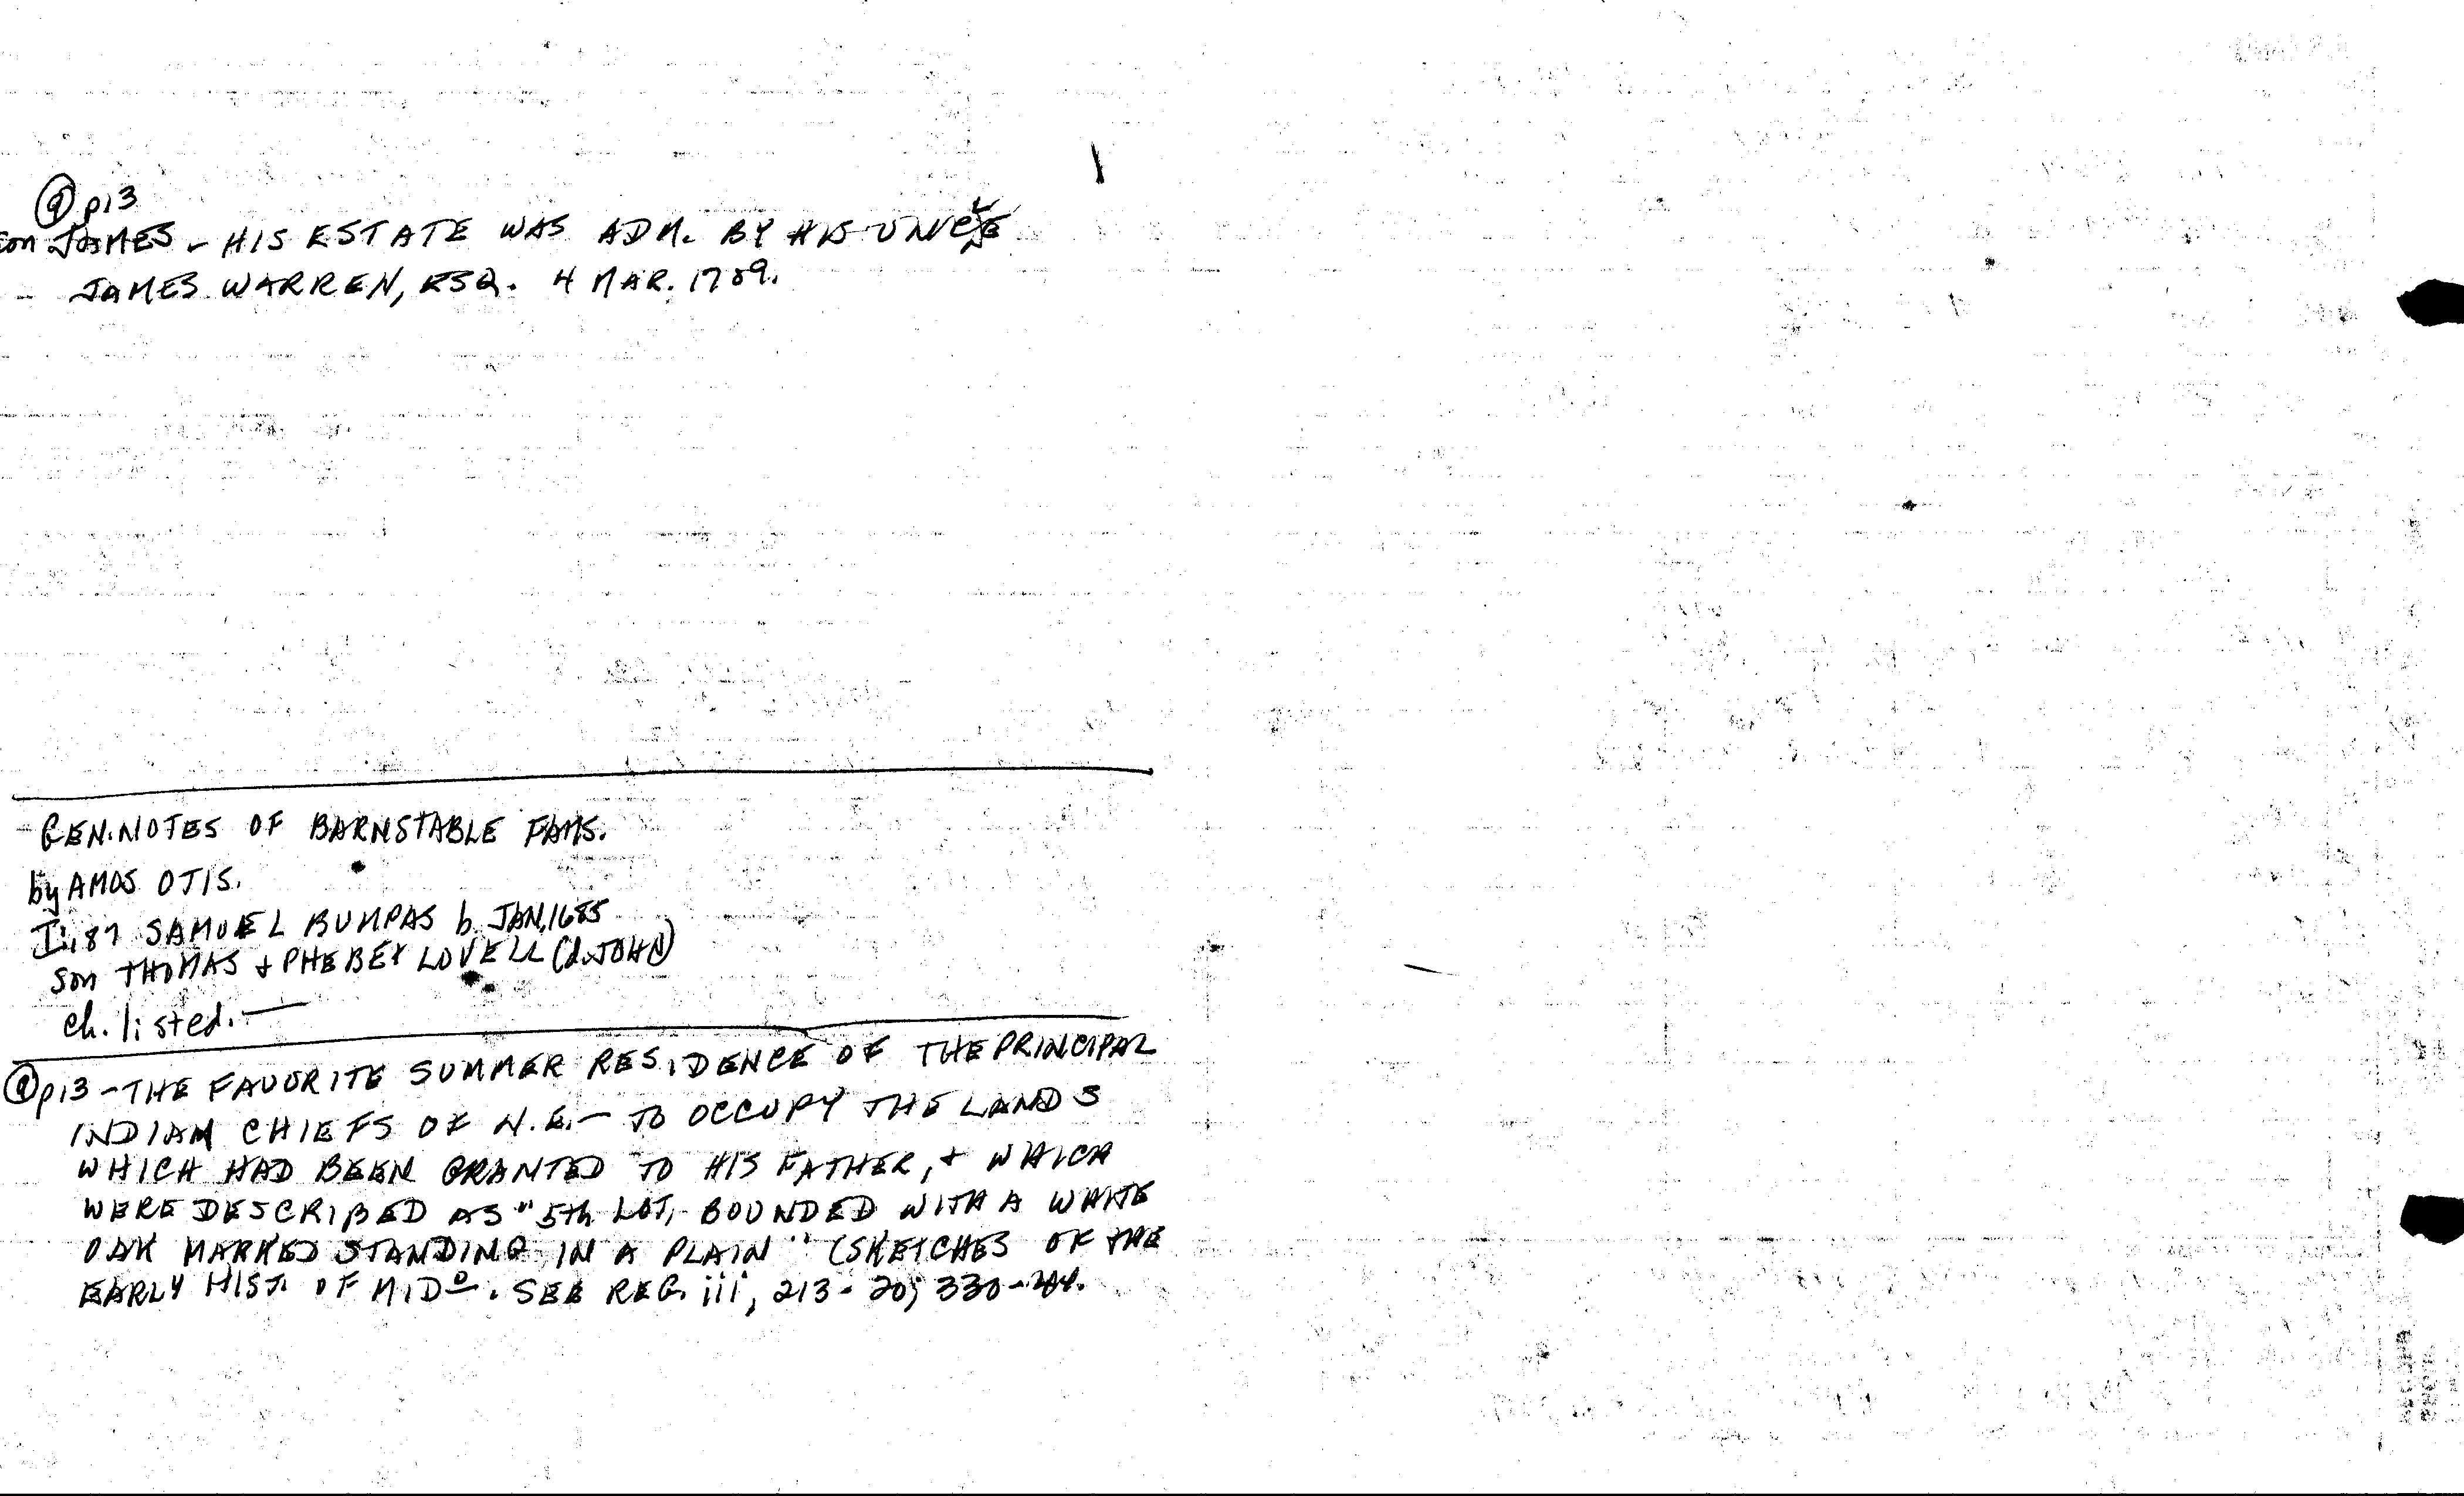 @ p13
son JAMES - HIS ESTATE WAS ADM. BY HIS UNCLE
JAMES WARREN, ESQ. 4 MAR. 1789.
GEN. NOTES OF BARNSTABLE FAMS.
by AMOS OTIS.
I:,87 SAMUEL BUMPAS b. JAN, 1685
son THOMAS + PHEBEY LOVELL (d. JOHN)
ch. listed. —
@ p13 - THE FAVORITE SUMMER RESIDENCE OF THE PRINCIPAL
INDIAN CHIEFS OF N.E. - TO OCCUPY THE LANDS
WHICH HAD BEEN GRANTED TO HIS FATHER, + WHICH
WERE DESCRIBED AS "5th LOT, BOUNDED WITH A WHITE
OAK MARKED STANDING IN A PLAIN" (SKETCHES OF THE
EARLY HIST. OF MIDo. SEE REG. iii, 213-20; 330-